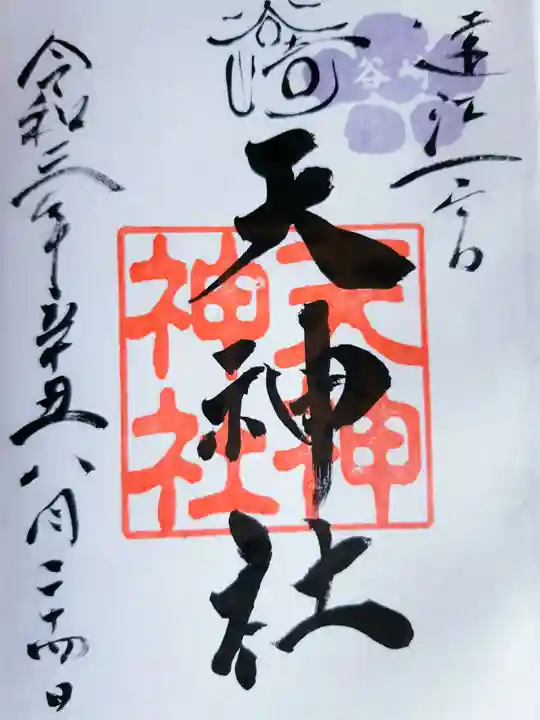 遠江一之宮
谷崎
谷崎
天神社
天神
神社
令和三年辛丑八月二十四日